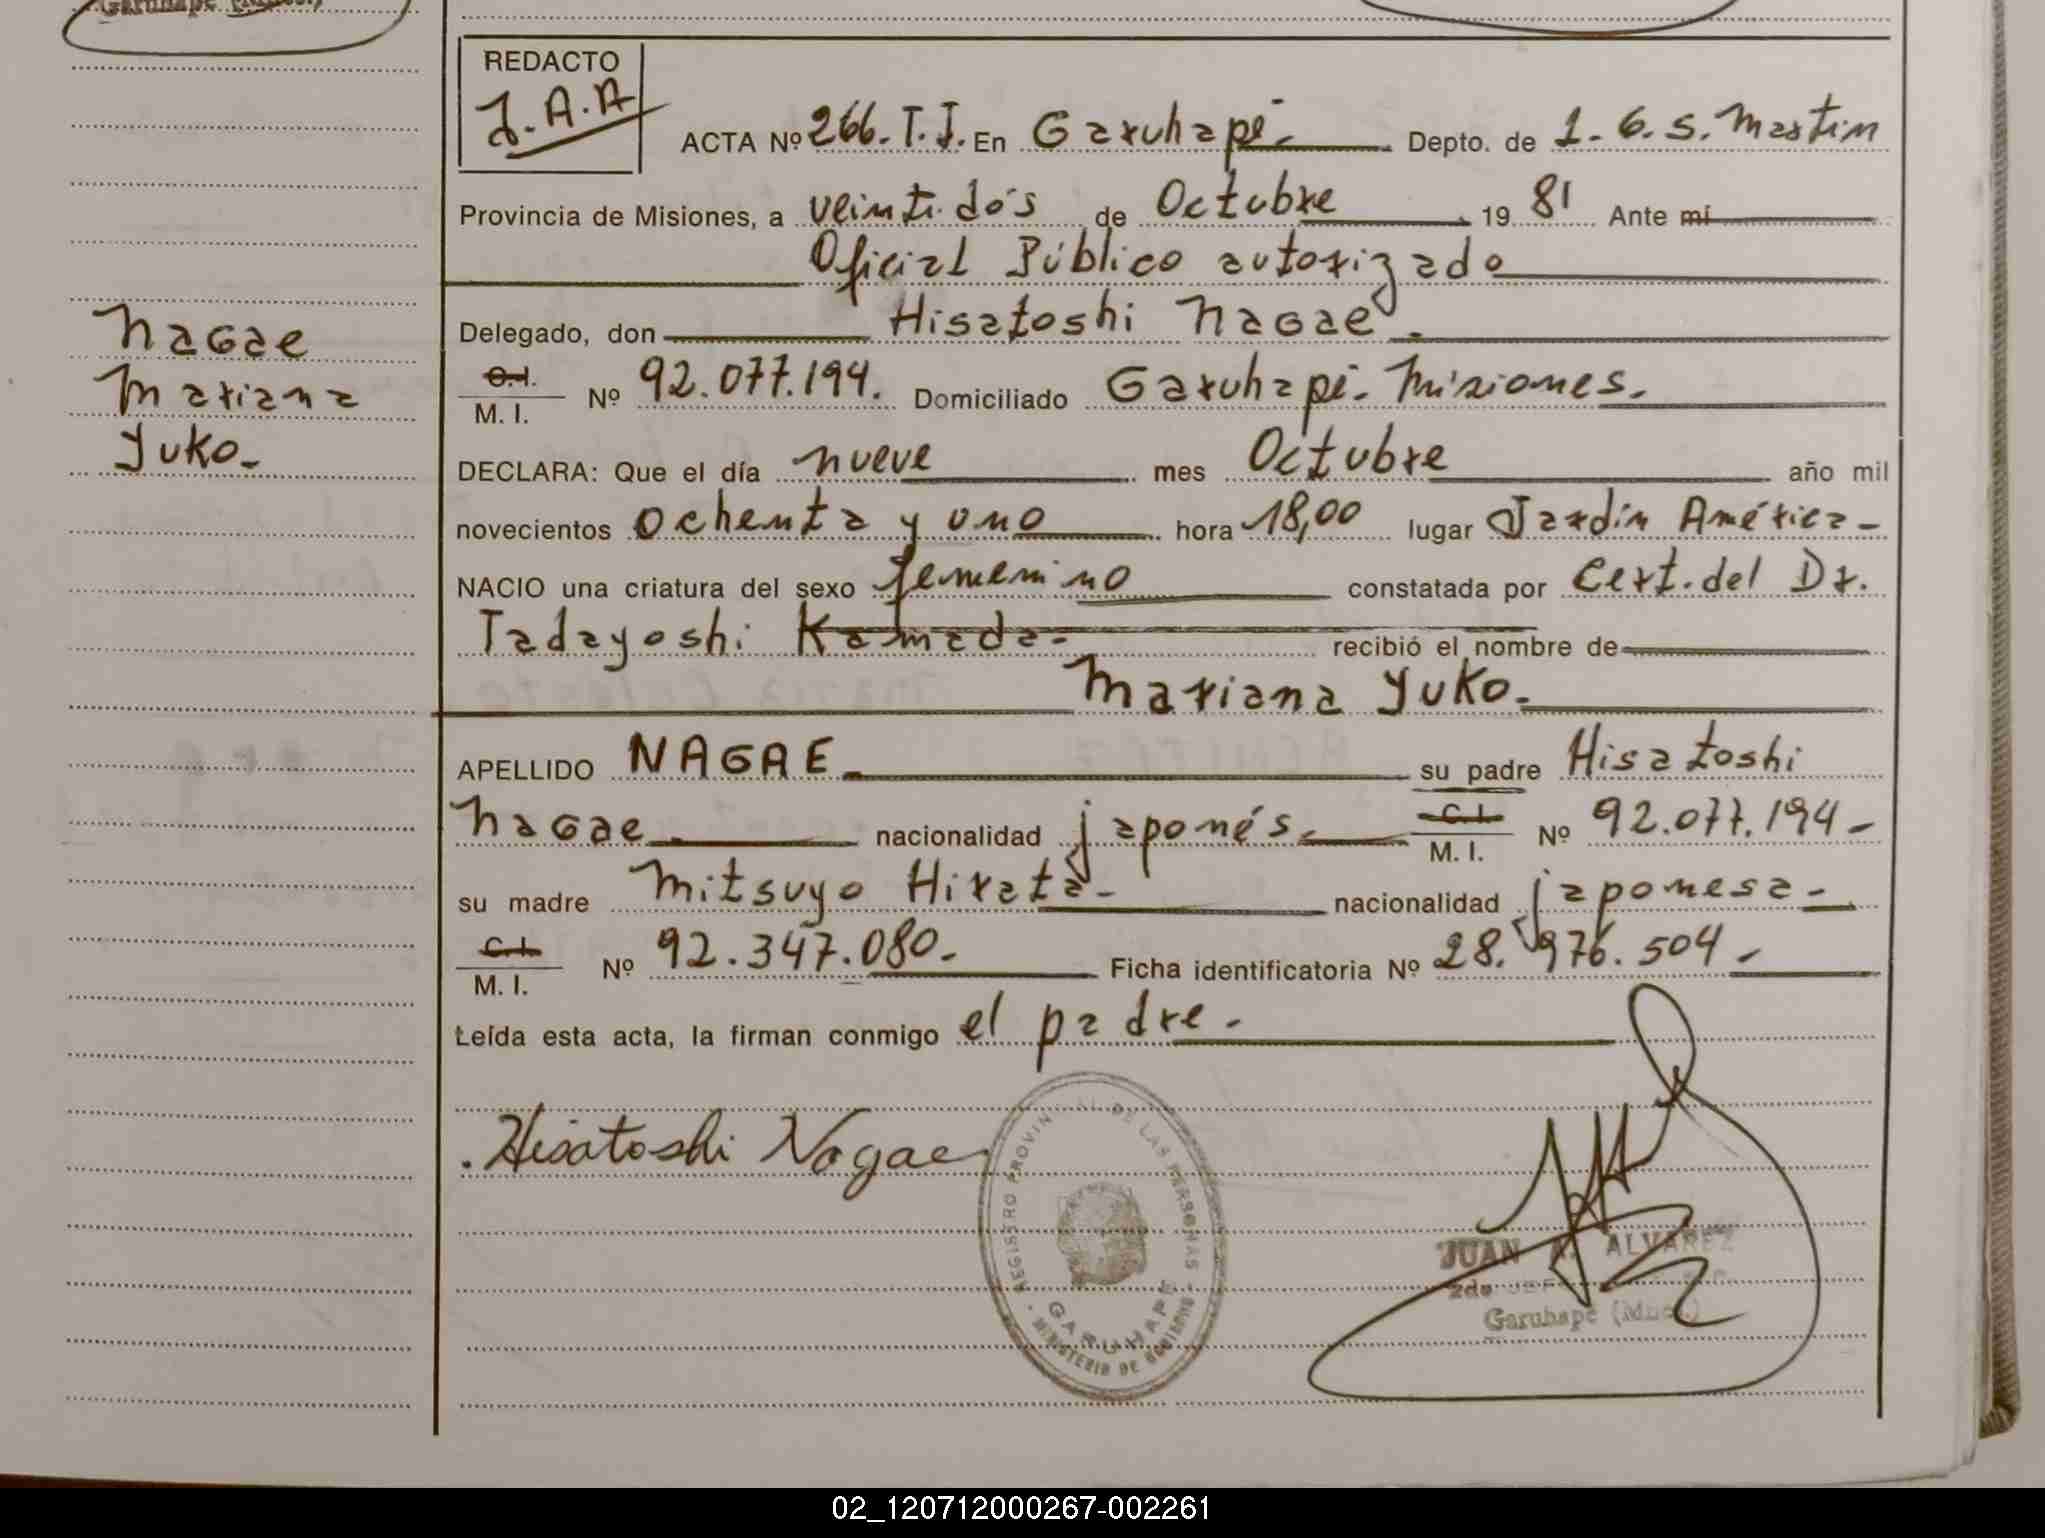 REDACTO
J.A.A
ACTA Nº 266. T.I. En Garuhapé. Depto. de L. G. S. Martin
Provincia de Misiones, a veintidós de Octubre 19 81 Ante mí
Oficial Público autorizado
Delegado, don Hisatoshi Nagae.
C.I. M. I. Nº 92.077.194. Domiciliado Garuhapé. Misiones.
DECLARA: Que el día nueve mes Octubre año mil
novecientos ochenta y uno hora 18,00 lugar Jardín América-
NACIO una criatura del sexo femenino constatada por Cert. del Dr.
Tadayoshi Kamada- recibió el nombre de
Mariana Yuko.
APELLIDO NAGAE su padre Hisatoshi
Nagae nacionalidad japonés- C.I. M. I. Nº 92.077.194-
su madre Mitsuyo Hirata- nacionalidad japonesa-
C.I. M. I. Nº 92.347.080- Ficha identificatoria Nº 28.976.504-
Leída esta acta, la firman conmigo el padre-
Nagae
Mariana
Yuko-
Hisatoshi Nagae
REGISTRO PROVINCIAL DE LAS PERSONAS
MINISTERIO DE GOBIERNO
GARUHAPE
JUAN A. ALVAREZ
2do JEF
Garuhapé (Mnes.)
02_120712000267-002261